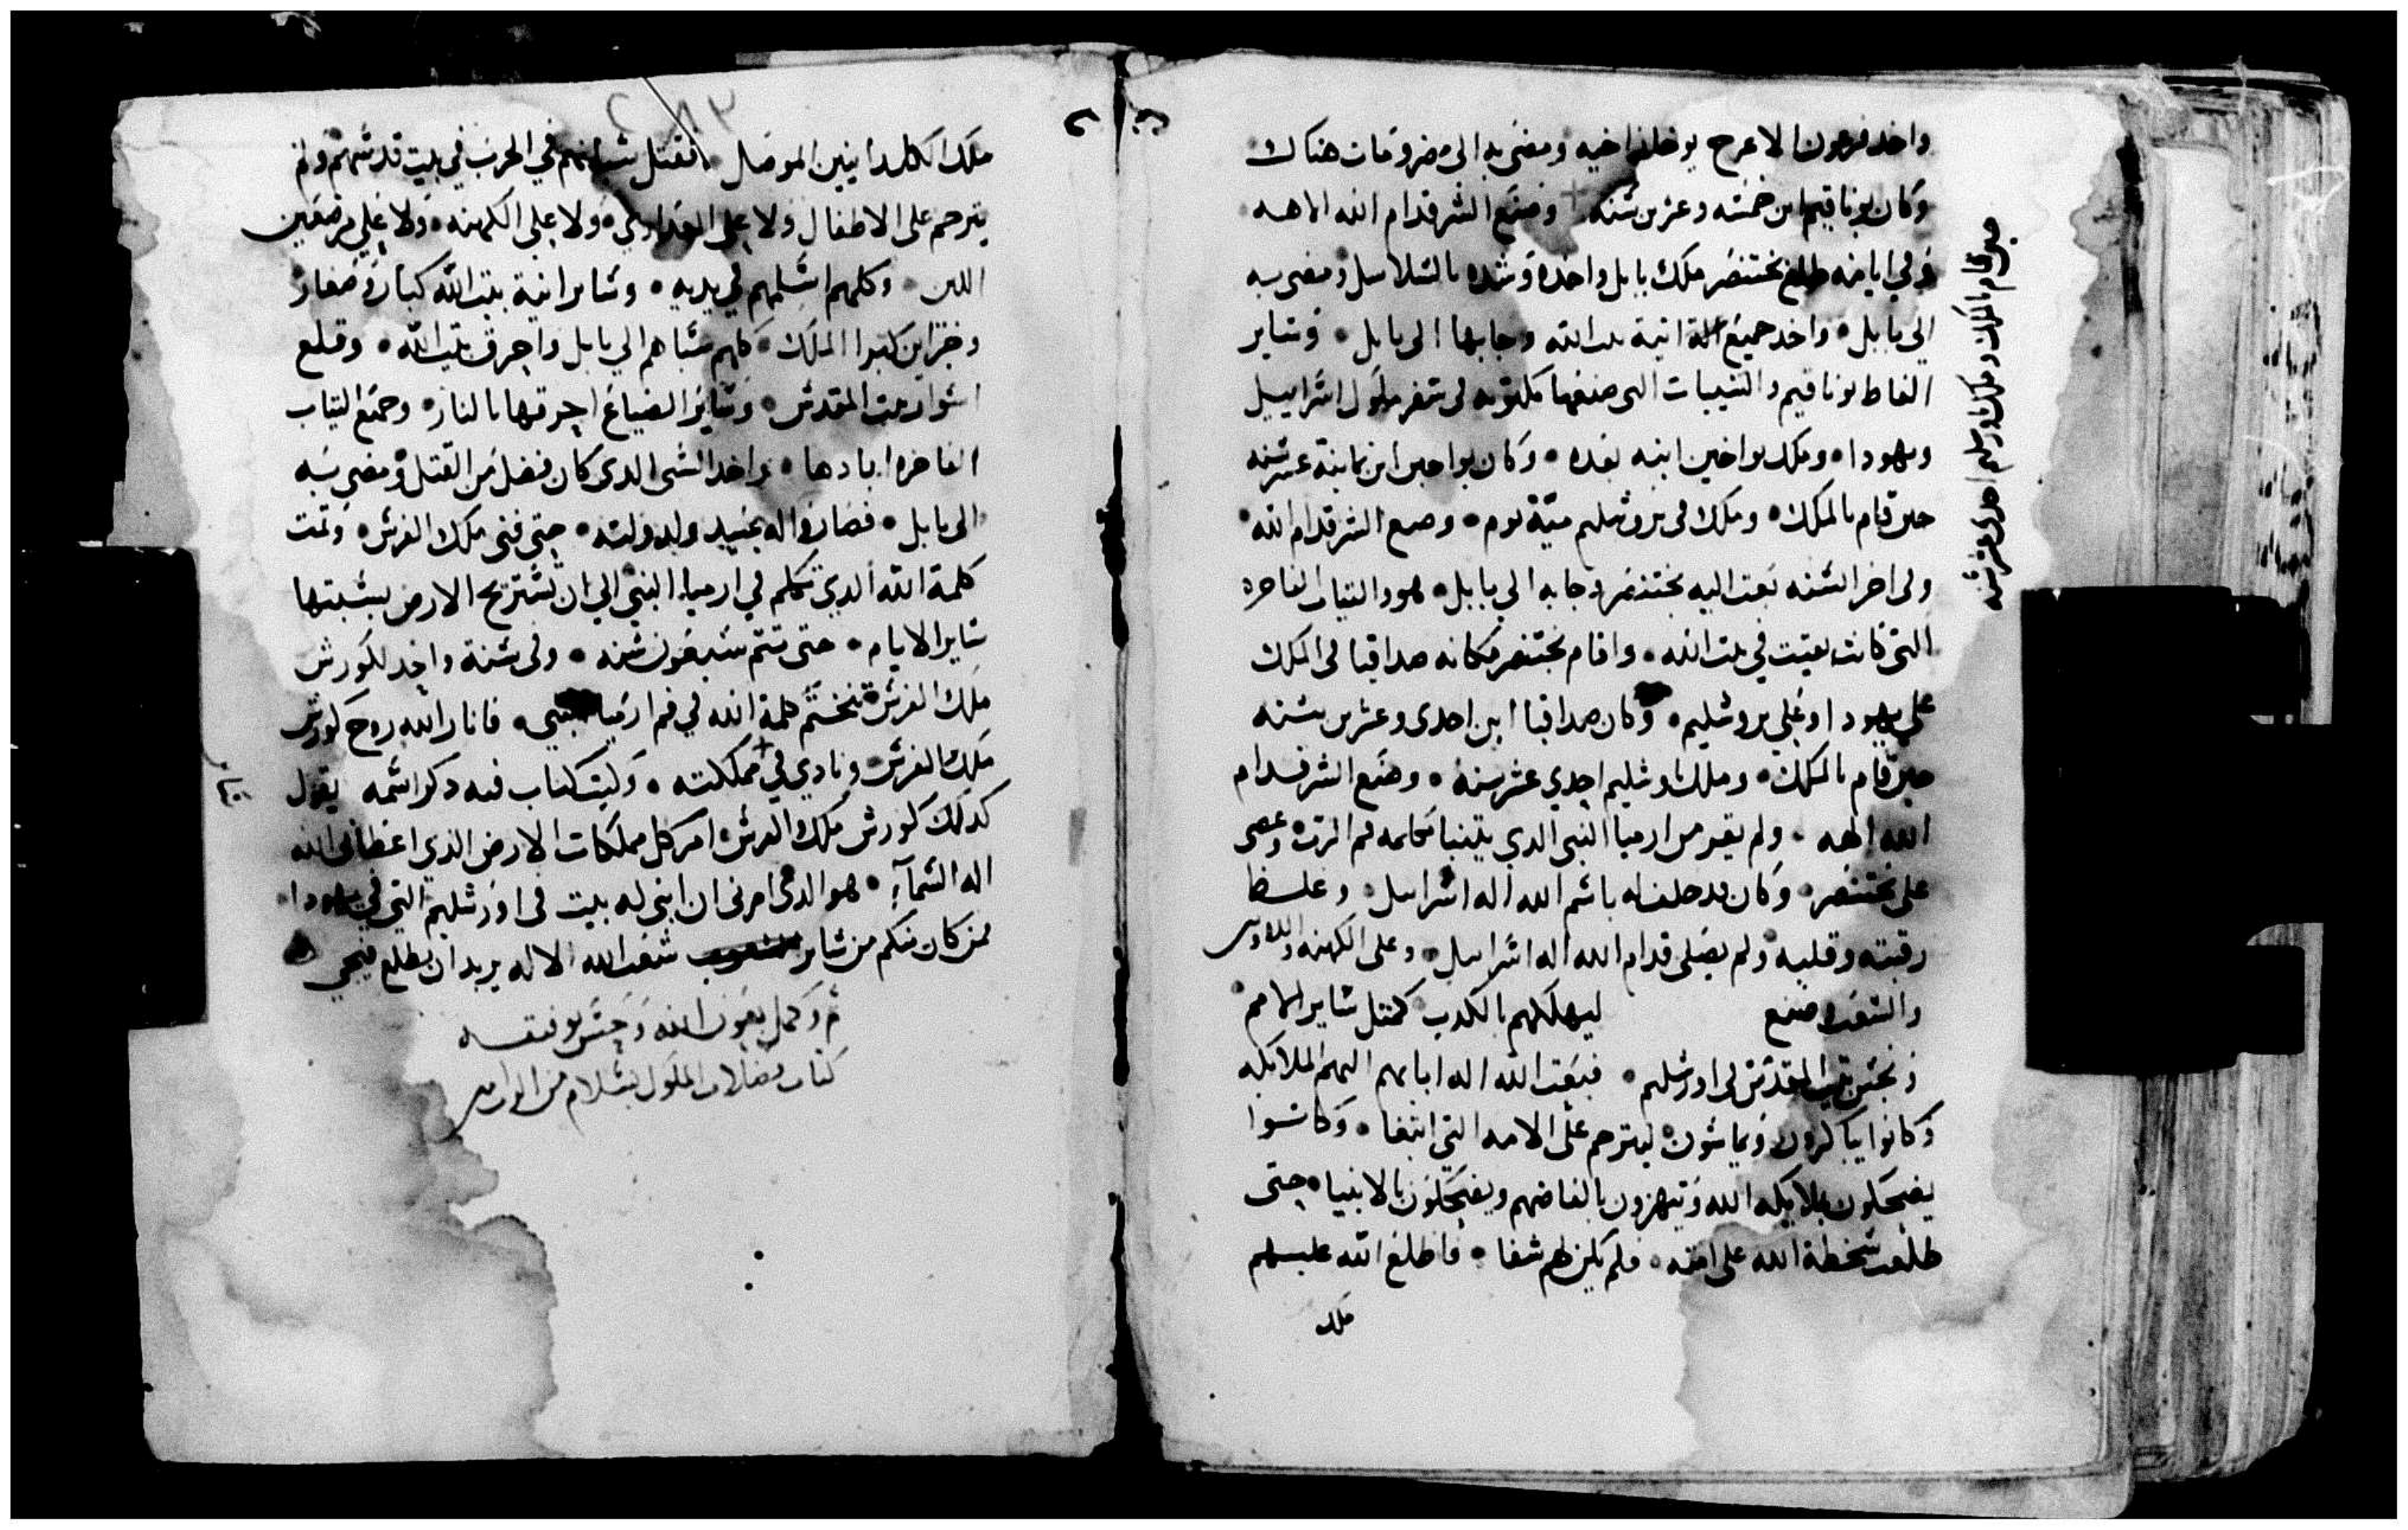 واخد فرعون الاعرج يوخاز اخيه ومضى به الى مضر ومات هناك
وكان يوناقيم ابن خمسه وعشرين سنه وصنع الشر قدام الله الاهه
وفي ايامه طلع بختنصر ملك بابل واخده وشده بالسلاسل ومضى به
الي بابل واخد جميع الة انية بيت الله وجابها الى بابل وساير
الفاظ يوناقيم والسيبات التي صنعها مكتوبه في سفر ملول اسراييل
ويهودا وملك يواخين ابنه بعده وكان يواخين ابن ثمانية عشر سنه
حين قام بالملك وملك في يروشليم مية يوم وصنع الشر قدام الله
وفي اخر السنه بعت اليه بختنصر وجابه الي بابل هو والتياب الفاخره
التي كانت بقيت في بيت الله واقام بختنصر مكانه صداقيا في الملك
علي يهودا وعلي يروشليم وكان صداقيا ابن احدى وعشرين سنه
حين قام بالملك وملك اورشليم احدي عشر سنه وصنع الشر قدام
الله الهه ولم يقير من ارميا النبي الدي يتنبا فم الرب وعصى
على بختنصر وكان قد حلف له باسم الله اله اسراييل وغلظ
رقبته وقلبه ولم يصلي قدام الله اله اسراييل وعلى الكهنه
والشعب صنع ليهلكهم بالكدب كمتل ساير الامم
ونجس بيت المقدس في اورشليم فبعت الله اله ابايهم اليهم الملايكه
وكانوا يباكرون ويماسون ليترحم على الامه التي وكانوا
يضحكون بملايكه الله ويتهزون بالفاضهم ويضحكون بالانبيا حتى
طلعت سخطة الله على امته ولم يكن لهم شفا فاطلع الله عليهم
ملك
حين قام بالملك وملك اورشليم احدى عشر سنه
ملك الكلدانيين الموصل فقتل شبانهم في الحرب في بيت قدسهم ولم
يترحم على الاطفال ولا على العداري ولا علي الكهنه ولا علي مرضعين
اللبن وكلهم اسلمهم في يديه وساير انية بيت الله كبار وصغار
وخزاين كبرا الملك كلهم سباهم الي بابل واحرق بيت الله وقلع
اسوار بيت المقدس وساير الضياع احرقها بالنار وجميع التياب
الفاخره ابادها واخد الشي الدى كان فضل من القتل ومضى به
الى بابل فصاروا له عبيد ولدولته حتى فنى ملك الفرس وتمت
كلمة الله الدي تكلم في ارميا النبي الي ان تستريح الارض بسبتها
ساير الايام حتى تتم سبعون سنه وفي سنة واحد لكورش
ملك الفرس تختم كلمة الله في فم ارميا النبي فانار الله روح كورش
ملك الفرس ونادي في مملكته وكتب كتاب فيه دكر اسمه يقول
كدلك كورش ملك الفرس امر كل مملكات الارض الذي اعطاني الله
اله السماء هو الدي امرنى ان ابنى له بيت في اورشليم التي في يهودا
فمن كان منكم من ساير شعب الله الاله يريد ان يطلع فيجي
تم وكمل بعون الله وحسن توفيقه
كتاب فضالات الملول بسلام من الرب امين